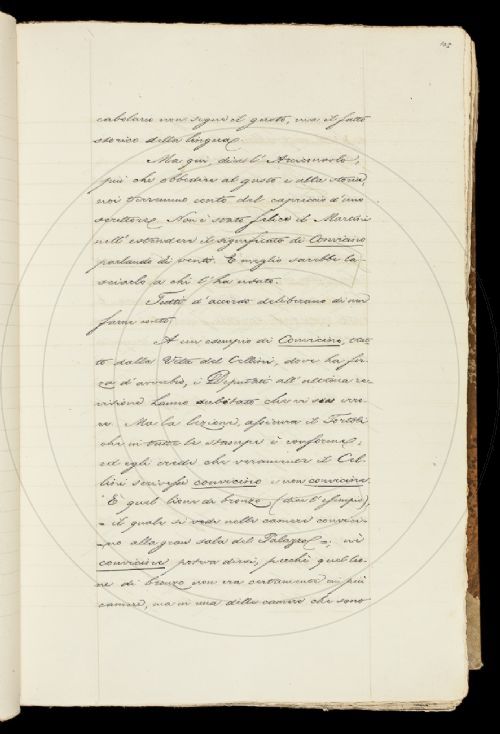 102
cabolario non segue il gusto, ma il fatto
storico della lingua.
Ma qui, dice l'Arciconsolo,
più che obbedire al gusto e alla storia,
noi terremmo conto del capriccio d'uno
scrittore. Non è stato felice il Martini
nell'estendere il significato di Convicino
parlando di vento. E meglio sarebbe la-
sciarlo a chi l'ha usato.
Tutti d'accordo deliberano di non
farne conto.
A un esempio di Convicino, trat-
to dalla Vita del Cellini, dove ha for-
za d'avverbio, i Deputati all'ultima re-
visione hanno dubitato che vi sia erro-
re. Ma la lezione, assicura il Tortoli
che in tutte le stampe è conforme;
ed egli crede che veramente il Cel-
lini scrivesse convicino e non convicina.
È quel lione di bronzo (dice l'esempio),
il quale si vede nelle camere convici-
no alla gran sala del Palazzo; nè
convicine poteva dirsi, perchè quel lio-
ne di bronzo non era certamente in più
camere, ma in una delle camere che sono